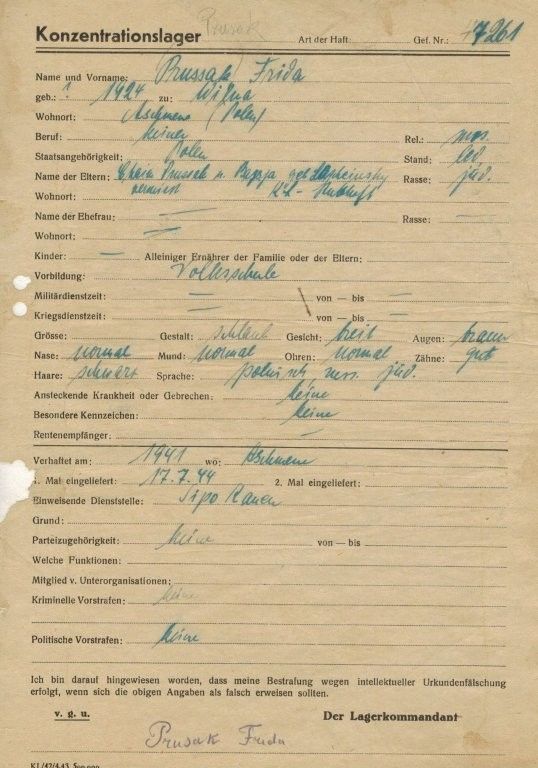 Konzentrationslager Prusak Art der Haft: Gef. Nr.: 47261
Name und Vorname: Prussak Frida
geb.: ? 1924 zu: Wilna
Wohnort: Aschmena (Polen)
Beruf: keinen Rel.: mos.
Staatsangehörigkeit: Polen Stand: led.
Name der Eltern: Prussak u. geb. Rasse: jüd.
Wohnort: vermisst KL - Stutthof
Name der Ehefrau: — Rasse: —
Wohnort: —
Kinder: — Alleiniger Ernährer der Familie oder der Eltern:
Vorbildung: Volksschule
Militärdienstzeit: — von — bis —
Kriegsdienstzeit: — von — bis —
Grösse: Gestalt: schlank Gesicht: breit Augen: braun
Nase: normal Mund: normal Ohren: normal Zähne: gut
Haare: schwarz Sprache: polnisch russ. jüd.
Ansteckende Krankheit oder Gebrechen: keine
Besondere Kennzeichen: keine
Rentenempfänger: —
Verhaftet am: 1941 wo: Aschmena
1. Mal eingeliefert: 17.7.44 2. Mal eingeliefert:
Einweisende Dienststelle: Sipo Kauen
Grund:
Parteizugehörigkeit: keine von — bis
Welche Funktionen:
Mitglied v. Unterorganisationen:
Kriminelle Vorstrafen: keine
Politische Vorstrafen: keine
Ich bin darauf hingewiesen worden, dass meine Bestrafung wegen intellektueller Urkundenfälschung
erfolgt, wenn sich die obigen Angaben als falsch erweisen sollten.
v. g. u. Der Lagerkommandant
Prusak Frida
KL/42/4.43 500.000